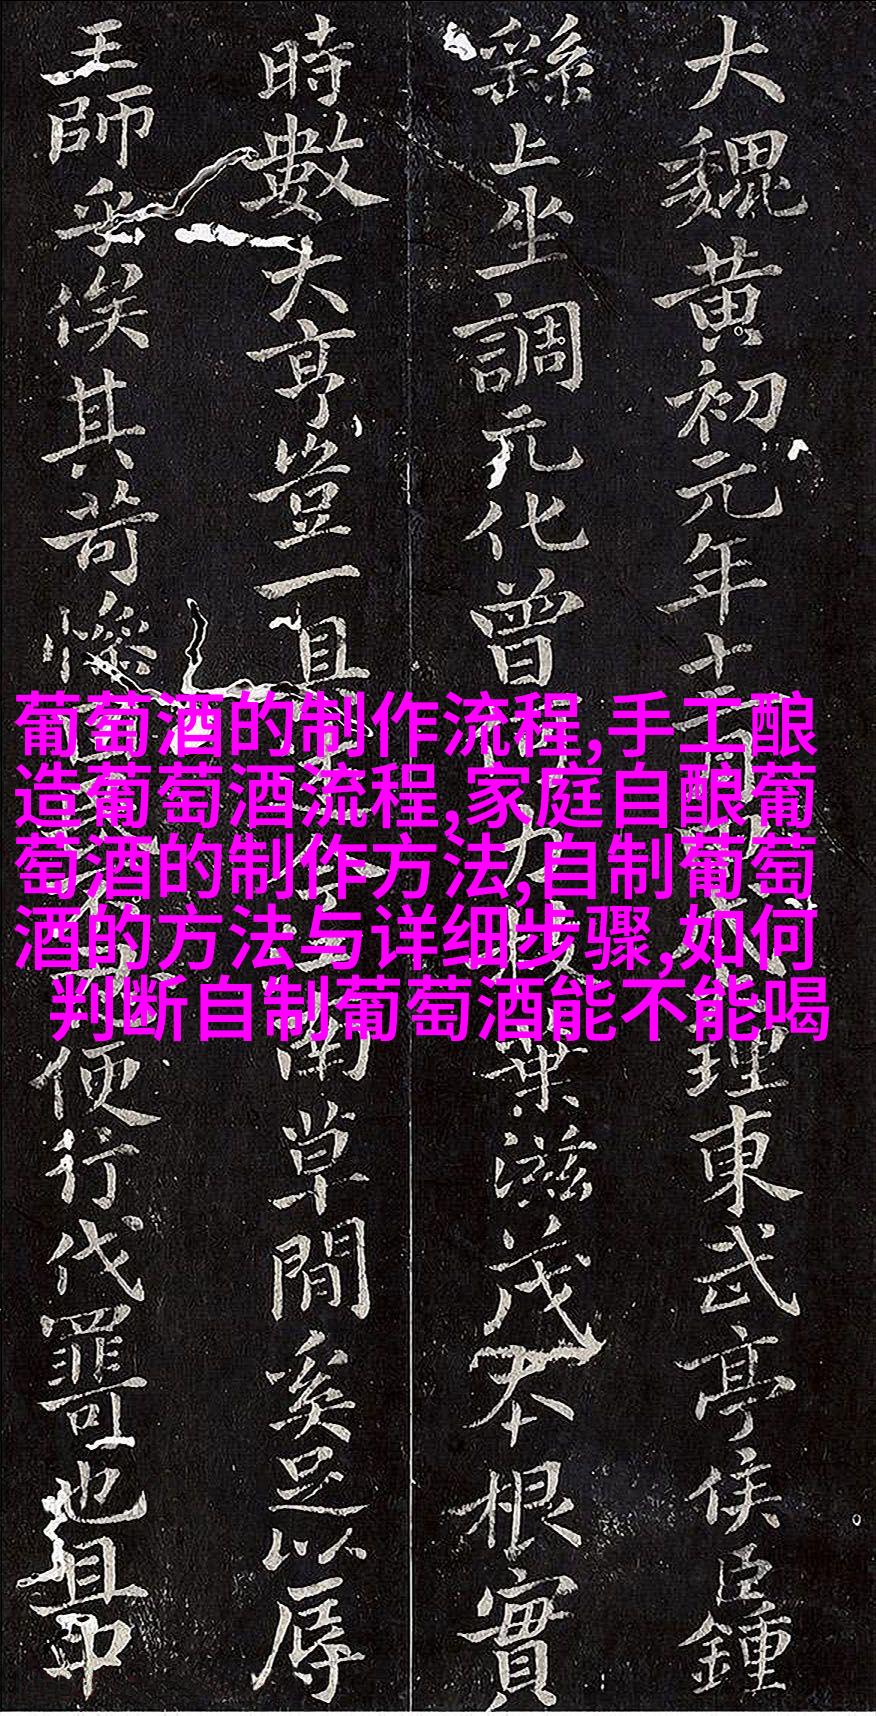 大魏黄初元年十理東武亭侯臣鍾
繇上坐調元化曾葉滋茂本根實
時數大亨豈一且草間奚足以辱
王師乎俟其苛慘便行伐也且印
葡萄酒的制作流程,手工酿
造葡萄酒流程,家庭自酿葡
萄酒的制作方法,自制葡萄
酒的方法与详细步骤,如何
判断自制葡萄酒能不能喝